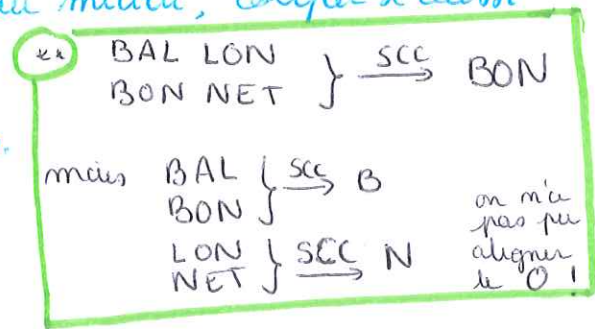 au milieu,
** BAL LON
BON NET } SCC → BON
mais BAL
BON } SCC → B
LON
NET } SCC → N
on n'a
pas pu
aligner
le O !